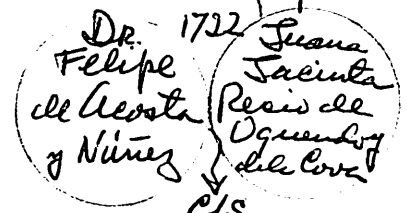 Dr.
Felipe
de Acosta
y Núñez
1722
Juana
Jacinta
Resio de
Oquendo y
de la Cova
c/s